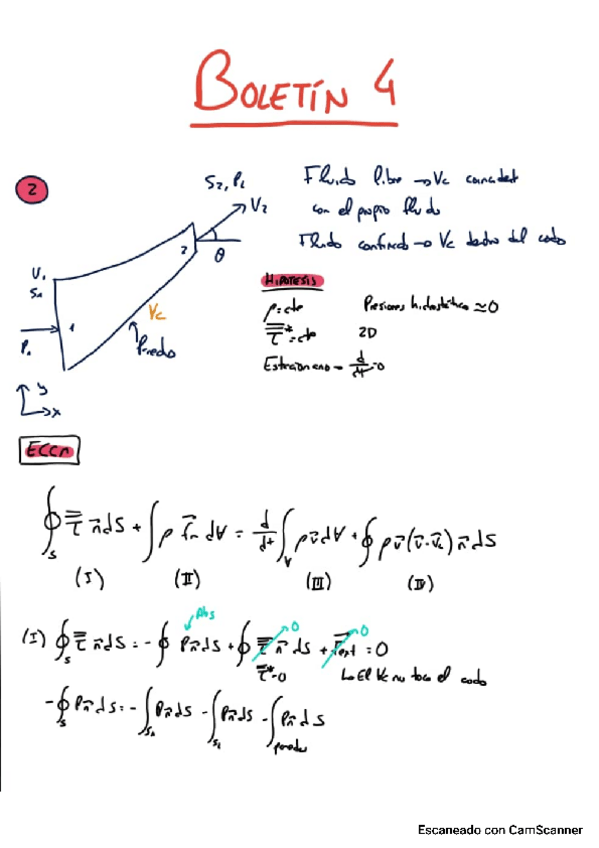 BOLETÍN 4
2
S2, P2
V2
2
θ
V1
S1
1
P1
Vc
Pared
y
x
Fluido libre → Vc coincident
con el propio fluido
Fluido confinado → Vc dentro del codo
HIPOTESIS
ρ = cte
Presiones hidrostática ≃ 0
τ* = cte
2D
Estacionario → d/dt = 0
ECCM
∮_S τ n dS + ∫ ρ f_m dV = d/dt ∫_V ρ v dV + ∮ ρ v (v - v_c) n dS
(I) (II) (III) (IV)
Abs
(I) ∮_S τ n dS = - ∮ P n dS + ∮ τ n dS + F_ext = 0
0 0
τ* = 0
↳ El Vc no toca el codo
- ∮_S P n dS = - ∫_S1 P n dS - ∫_S2 P n dS - ∫_pared P n dS
Escaneado con CamScanner